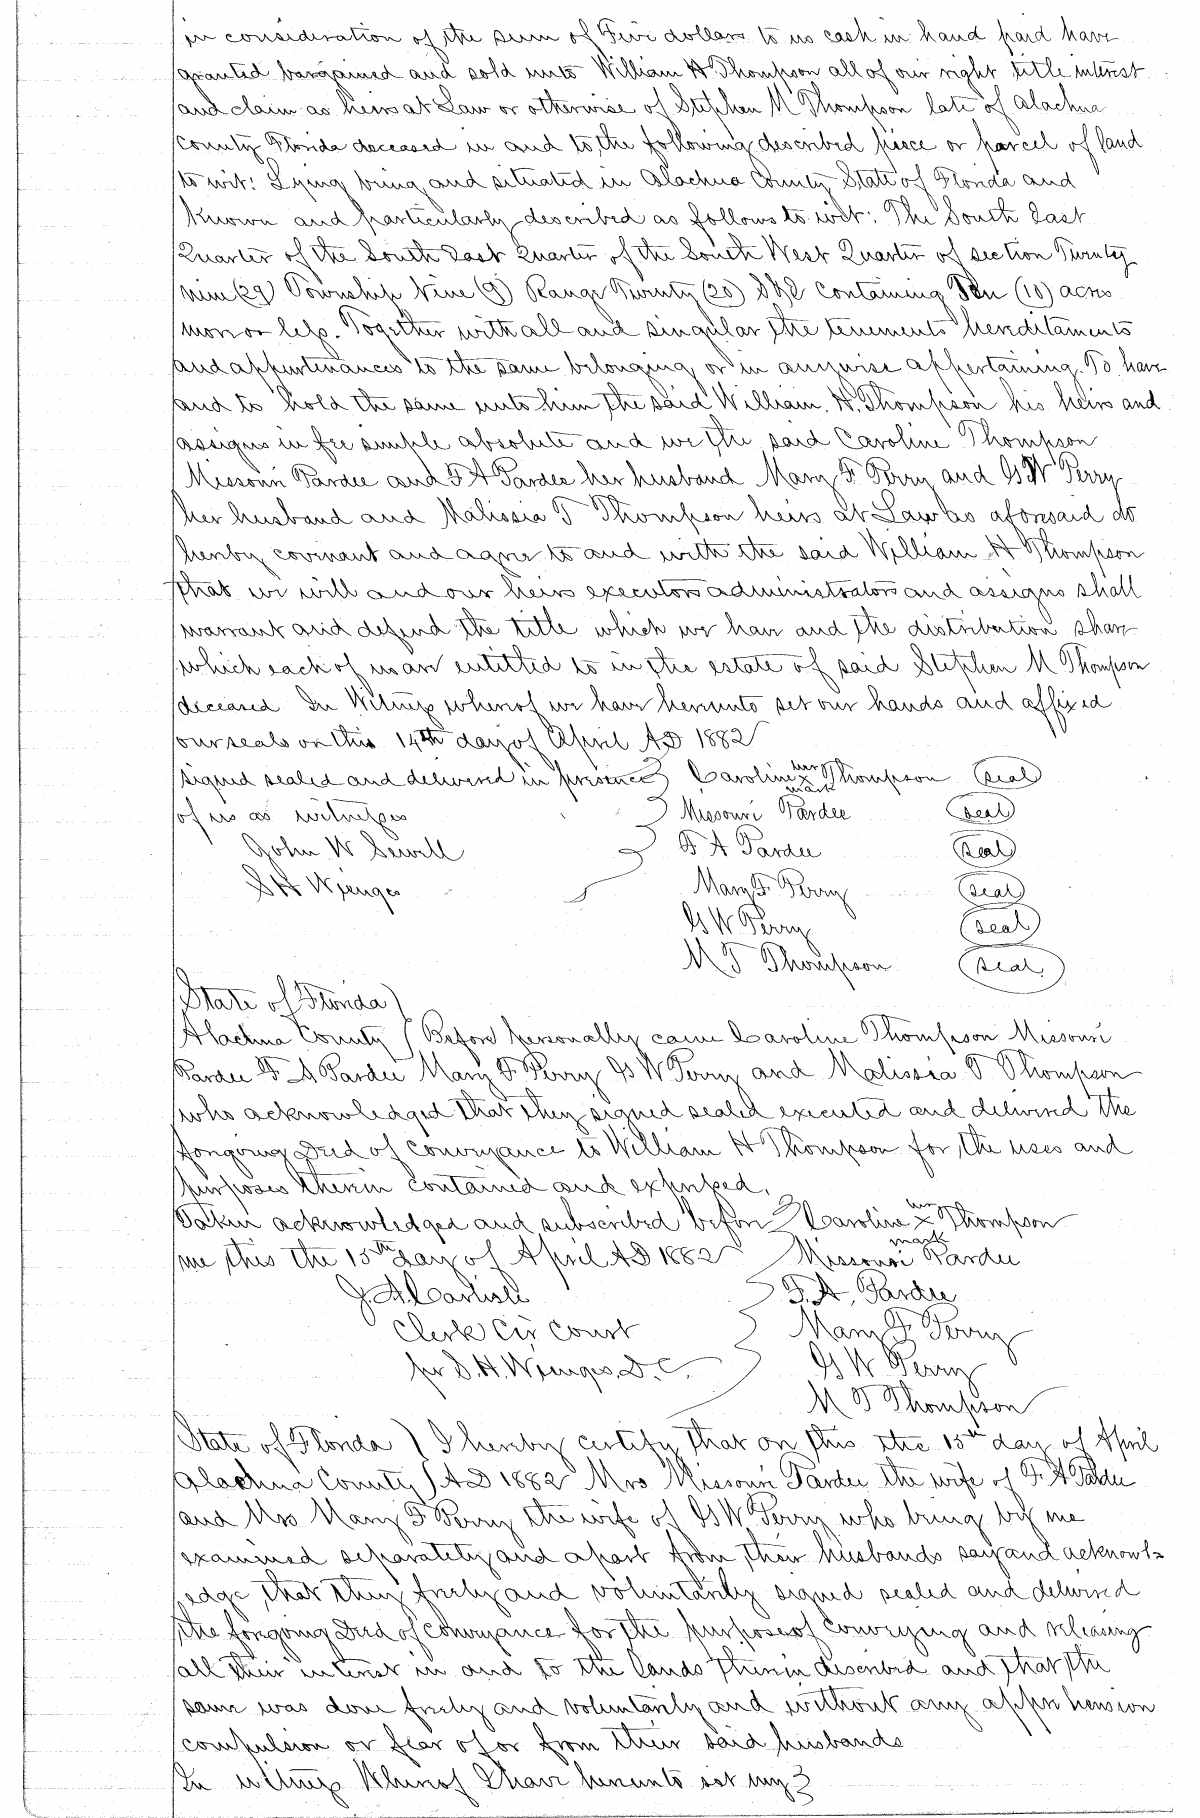 in consideration of the sum of Five dollars to us cash in hand paid have
granted bargained and sold unto William H Thompson all of our right title interest
and claim as heirs at Law or otherwise of Stephen M Thompson late of Alachua
County Florida deceased in and to the following described piece or parcel of land
to wit: Lying being and situated in Alachua County State of Florida and
Known and particularly described as follows to wit: The South East
Quarter of the South East Quarter of the South West Quarter of section Twenty
nine (29) Township Nine (9) Range Twenty (20) S&E Containing Ten (10) acres
more or less. Together with all and singular the tenements hereditaments
and appurtenances to the same belonging or in anywise appertaining. To have
and to hold the same unto him the said William. H. Thompson his heirs and
assigns in fee simple absolute and we the said Caroline Thompson
Missouri Pardee and F A Pardee her husband Mary F Perry and G W Perry
her husband and Malissia T Thompson heirs at Law as aforesaid do
hereby covenant and agree to and with the said William H Thompson
that we will and our heirs executors administrators and assigns shall
warrant and defend the title which we have and the distribution share
which each of us are entitled to in the estate of said Stephen M Thompson
deceased In Witness whereof we have hereunto set our hands and affixed
our seals on this 14th day of April AD 1882
signed sealed and delivered in presence Caroline her x mark Thompson (seal)
of us as witnesses Missouri Pardee (seal)
John W Sewell F A Pardee (seal)
S H Wienges Mary F Perry (seal)
G W Perry (seal)
M T Thompson (seal)
State of Florida )
Alachua County ( Before personally came Caroline Thompson Missouri
Pardee F A Pardee Mary F Perry G W Perry and Malissia T Thompson
who acknowledged that they signed sealed executed and delivered the
foregoing Deed of Conveyance to William H Thompson for the uses and
purposes therein contained and expressed.
Taken acknowledged and subscribed before Caroline her x mark Thompson
me this the 15th day of April AD 1882 Missouri Pardee
J. A. Carlisle F. A. Pardee
Clerk Cir Court Mary F Perry
per S. H. Wienges. D. C. G W Perry
M T Thompson
State of Florida ) I hereby certify that on this the 15th day of April
Alachua County ) AD 1882 Mrs Missouri Pardee the wife of F A Pardee
and Mrs Mary F Perry the wife of G W Perry who being by me
examined separately and apart from their husbands say and acknowl-
edge that they freely and voluntarily signed sealed and delivered
the foregoing Deed of Conveyance for the purpose of Conveying and releasing
all their interest in and to the lands therein described and that the
same was done freely and voluntarily and without any apprehension
compulsion or fear of or from their said husbands
In witness Whereof I have hereunto set my